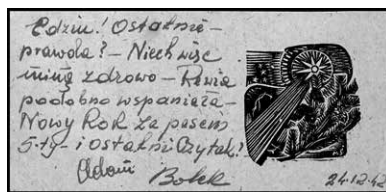 Edziu! Ostatnie –
prawda? – Niech więc
miną zdrowo –
podobno wspaniała –
Nowy Rok za pasem
5-ty – i ostatni
Bolek
24.12.42